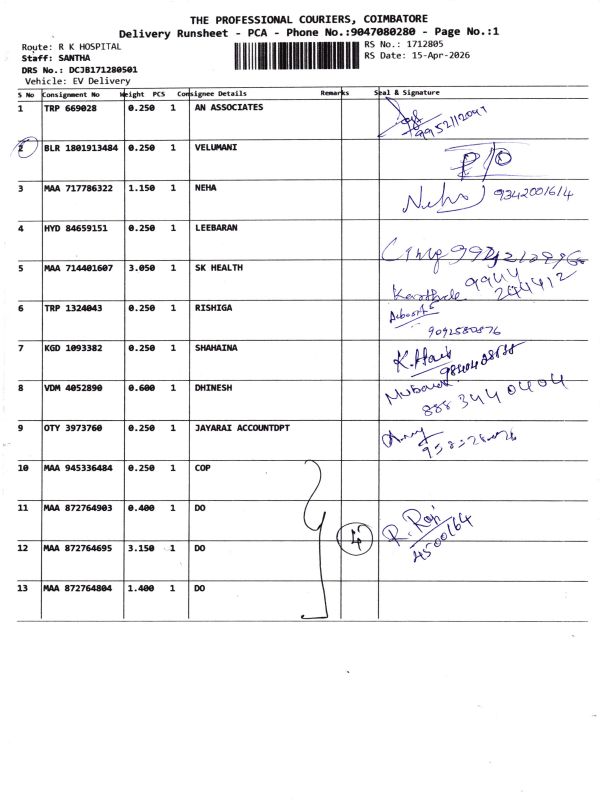 THE PROFESSIONAL COURIERS, COIMBATORE
Delivery Runsheet - PCA - Phone No.:9047080280 - Page No.:1
Route: R K HOSPITAL
Staff: SANTHA
DRS No.: DCJB171280501
Vehicle: EV Delivery
RS No.: 1712805
RS Date: 15-Apr-2026
S No Consignment No Weight PCS Consignee Details Remarks Seal & Signature
1 TRP 669028 0.250 1 AN ASSOCIATES
2 BLR 1801913484 0.250 1 VELUMANI
3 MAA 717786322 1.150 1 NEHA Neha 9342001614
4 HYD 84659151 0.250 1 LEEBARAN
5 MAA 714401607 3.050 1 SK HEALTH 9944 294412
6 TRP 1324043 0.250 1 RISHIGA 9092580876
7 KGD 1093382 0.250 1 SHAHAINA
8 VDM 4052890 0.600 1 DHINESH 888 344 0404
9 OTY 3973760 0.250 1 JAYARAI ACCOUNTDPT
10 MAA 945336484 0.250 1 COP
11 MAA 872764903 0.400 1 DO R. Raji
4500164
12 MAA 872764695 3.150 1 DO 4
13 MAA 872764804 1.400 1 DO